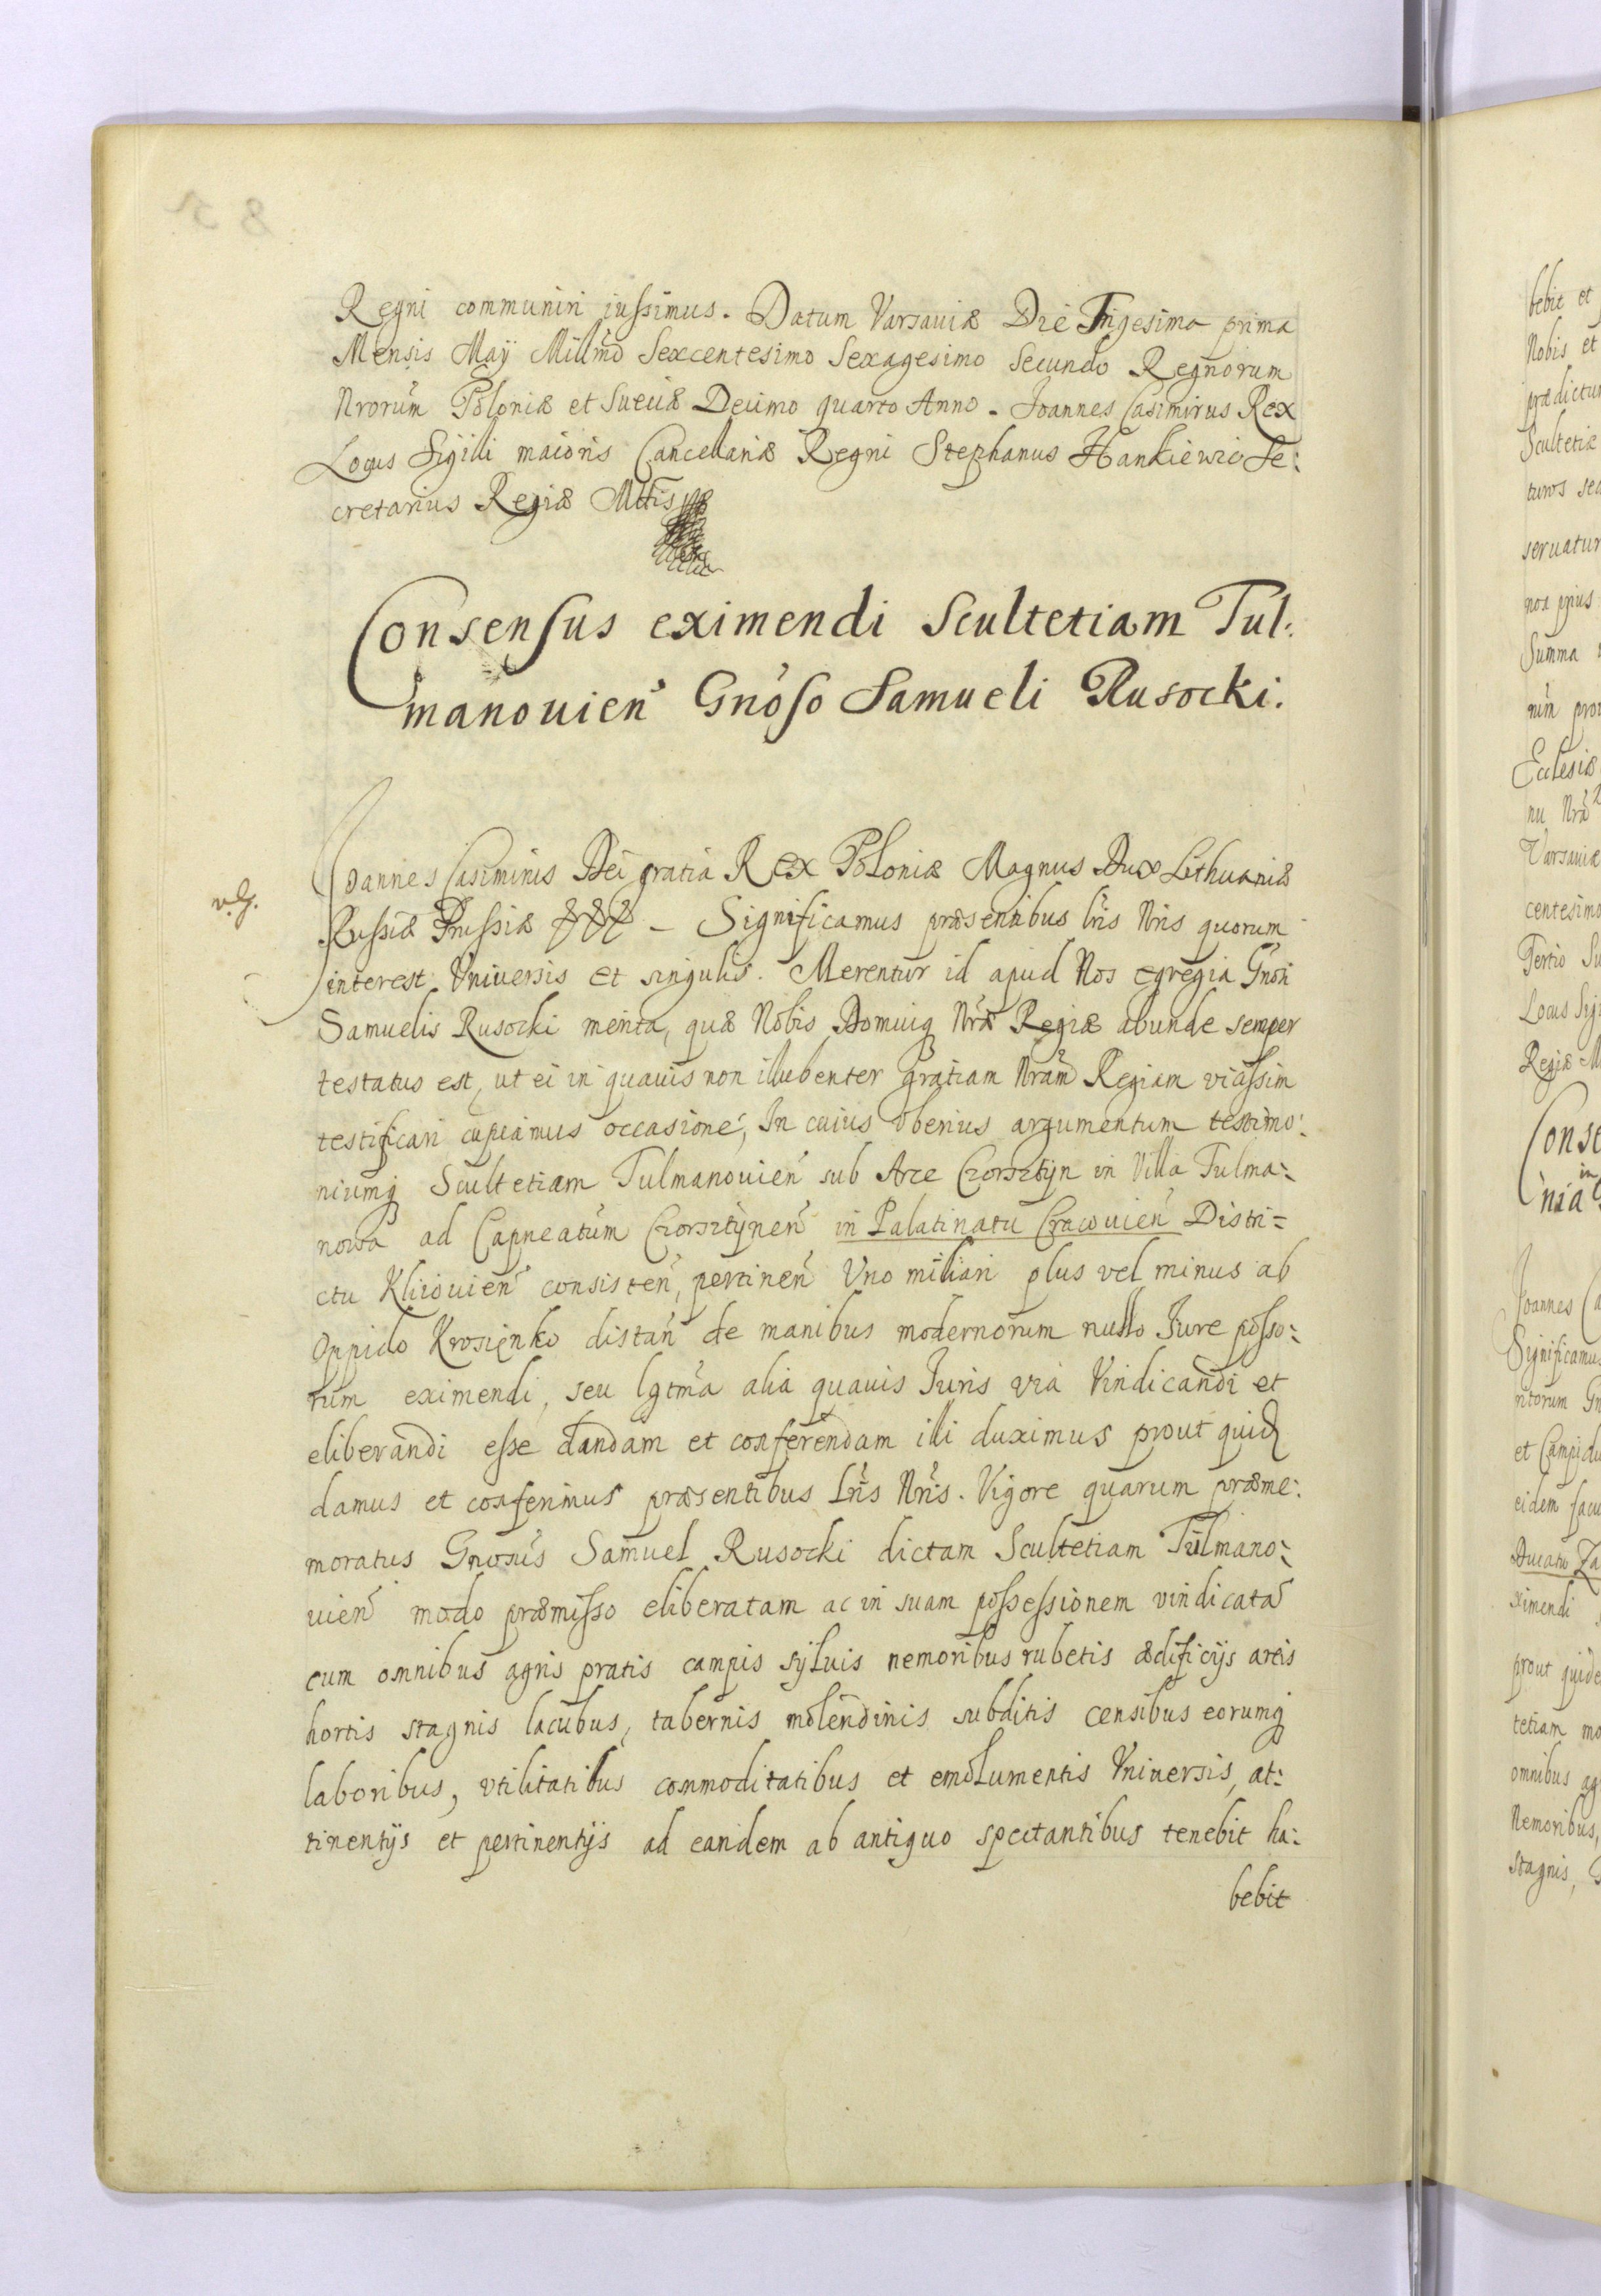 Regni communiri iussimus. Datum Varsauiæ Die Trigesima prima
Mensis Maÿ Millm̃o Sexcentesimo Sexagesimo Secundo Regnorum
Nrorũm Poloniæ et Sueciæ Decimo quarto Anno. Joannes Casimirus Rex
Locus Sigilli maioris Cancellariæ Regni Stephanus Hankiewic Se:
cretarius Regiæ Mttis
Consensus eximendi Scultetiam Tul:
manouien̄ Gnõso Samueli Rusocki.
v.G.
Joannes Casimirus Dei gratia Rex Poloniæ Magnus Dux Lithuaniæ
Russiæ Prussiæ &&& – Significamus præsentibus lr̃is Nr̃is quorum
interest Vniuersis et singulis. Merentur id apud Nos egregia Gnõsi
Samuelis Rusocki merita, quæ Nobis Domuiq Nræ̃ Regiæ abunde semper
testatus est, ut ei in quauis non illubenter gratiam Nrãm Regiam vicissim
testificari cupiamus occasione, In cuius vberius argumentum testimo:
niumq Scultetiam Tulmanouien̄ sub Arce Czorsztÿn in Villa Tulma:
nowa ad Capneatũm Czorsztÿnen̄ in Palatinatu Cracouien̄ Distri=
ctu consisten̄, pertinen̄ Vno miliari plus vel minus ab
Oppido Krosięnko distan̄ de manibus modernorum nullo Iure posso:
rum eximendi, seu lgtm̃a alia quauis Iuris via Vindicandi et
eliberandi esse dandam et conferendam illi duximus prout quid
damus et conferimus præsentibus Lr̃is Nr̃is. Vigore quarum præme:
moratus Gnosũs Samuel Rusocki dictam Scultetiam Tulmano:
uien̄ modo præmisso eliberatam ac in suam possessionem vindicatã
cum omnibus agris pratis campis syluis nemoribus rubetis ædificijs areis
hortis stagnis lacubus, tabernis molendinis subditis censibus eorumq
laboribus, vtilitatibus commoditatibus et emolumentis Vniuersis, at:
tinentÿs et pertinentÿs ad eandem ab antiquo spectantibus tenebit ha:
bebit